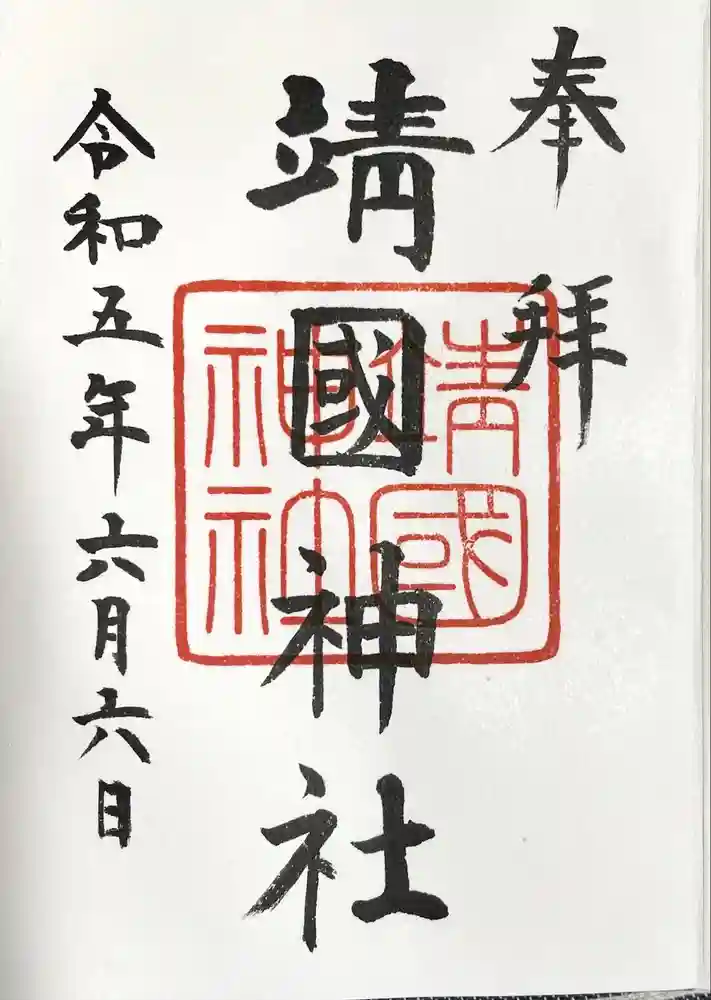 奉拝
靖國神社
靖國
神社
令和五年六月六日